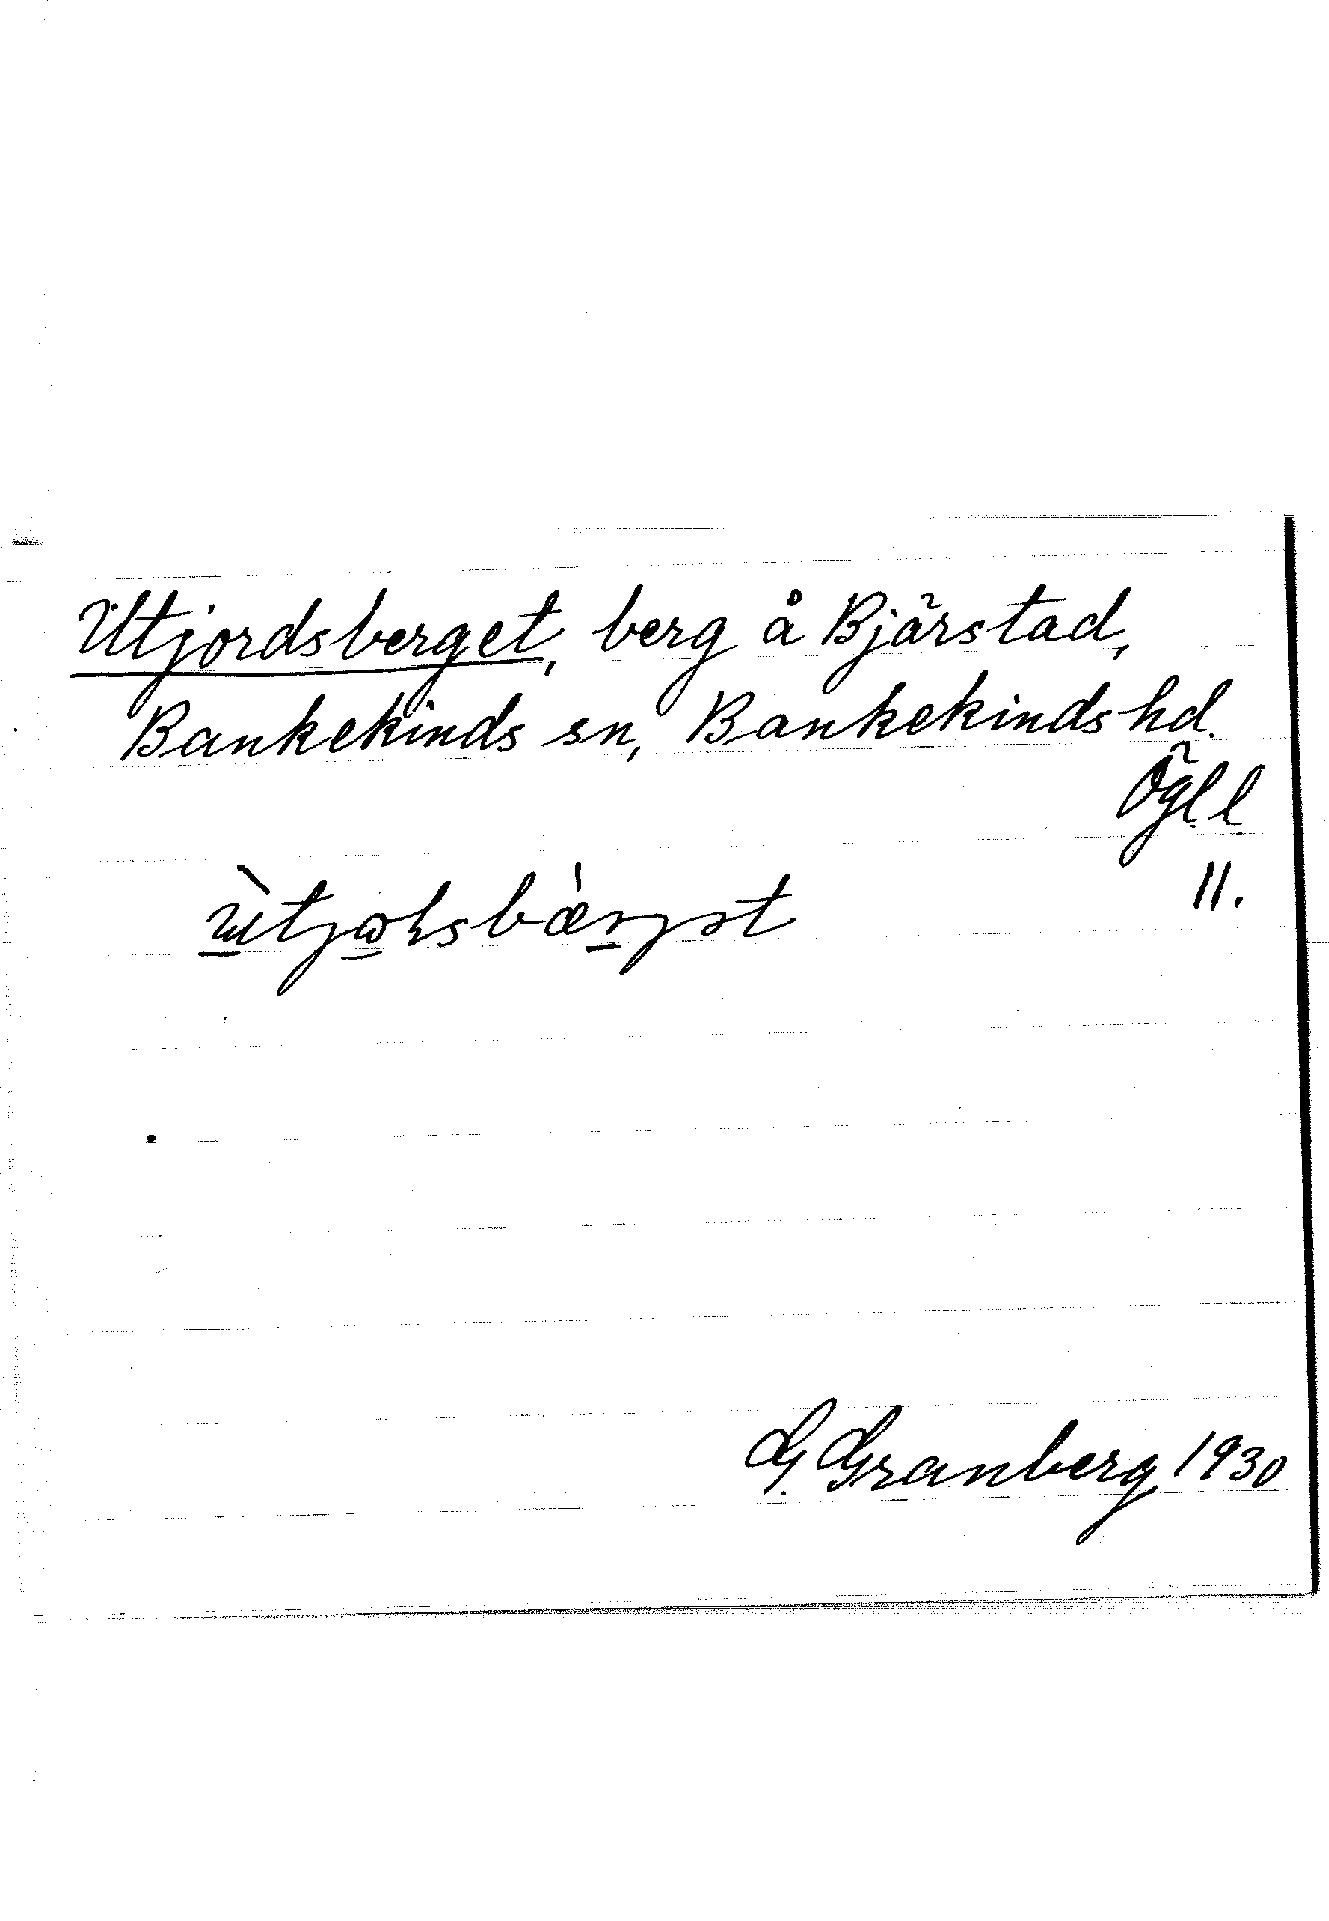 Utjordsberget, berg å Bjärstad,
Bankekinds sn, Bankekinds hd.
Ögl. l
11.
G. Granberg 1930